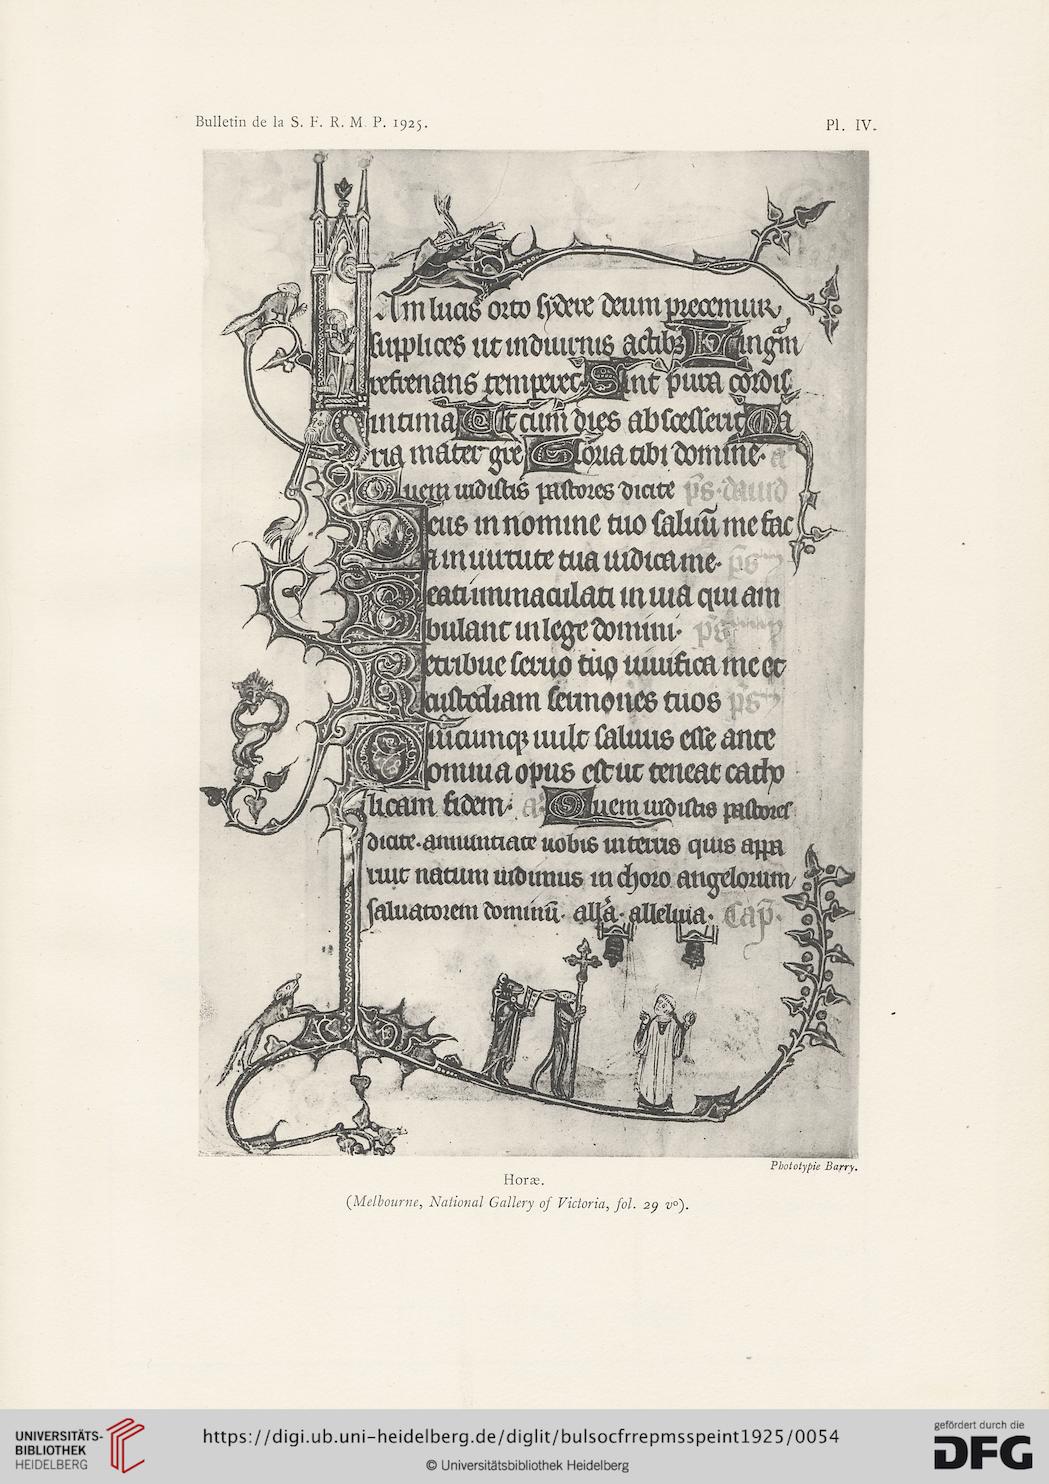 Bulletin de la S. F. R. M. P. 1925.
Pl. IV.
Am lucis orto sydere deum precemur
supplices ut in diurnis actibꝫ
refrenans temperet Sint pura cordis
intima Ut cum dies abscesserit Ma
ria mater gre Gloria tibi domine. a
Quem uidistis pastores dicite p̄s. dauid
Deus in nomine tuo saluū me fac
in uirtute tua iudica me. p̄s
Beati immaculati in uia qui am
bulant in lege domini. p̄s
Retribue seruo tuo uiuifica me et
custodiam sermones tuos p̄s
Quicunqꝫ uult saluus esse ante
omnia opus est ut teneat catho
licam fidem. a. Quem uidistis pastores
dicite. annuntiate uobis in terris quis appa
ruit natum uidimus in choro angelorum
saluatorem dominū. all'a. alleluia. Cap̄.
Phototypie Barry.
Horæ.
(Melbourne, National Gallery of Victoria, fol. 29 vº).
UNIVERSITÄTS-
BIBLIOTHEK
HEIDELBERG
https://digi.ub.uni-heidelberg.de/diglit/bulsocfrrepmsspeint1925/0054
© Universitätsbibliothek Heidelberg
gefördert durch die
DFG